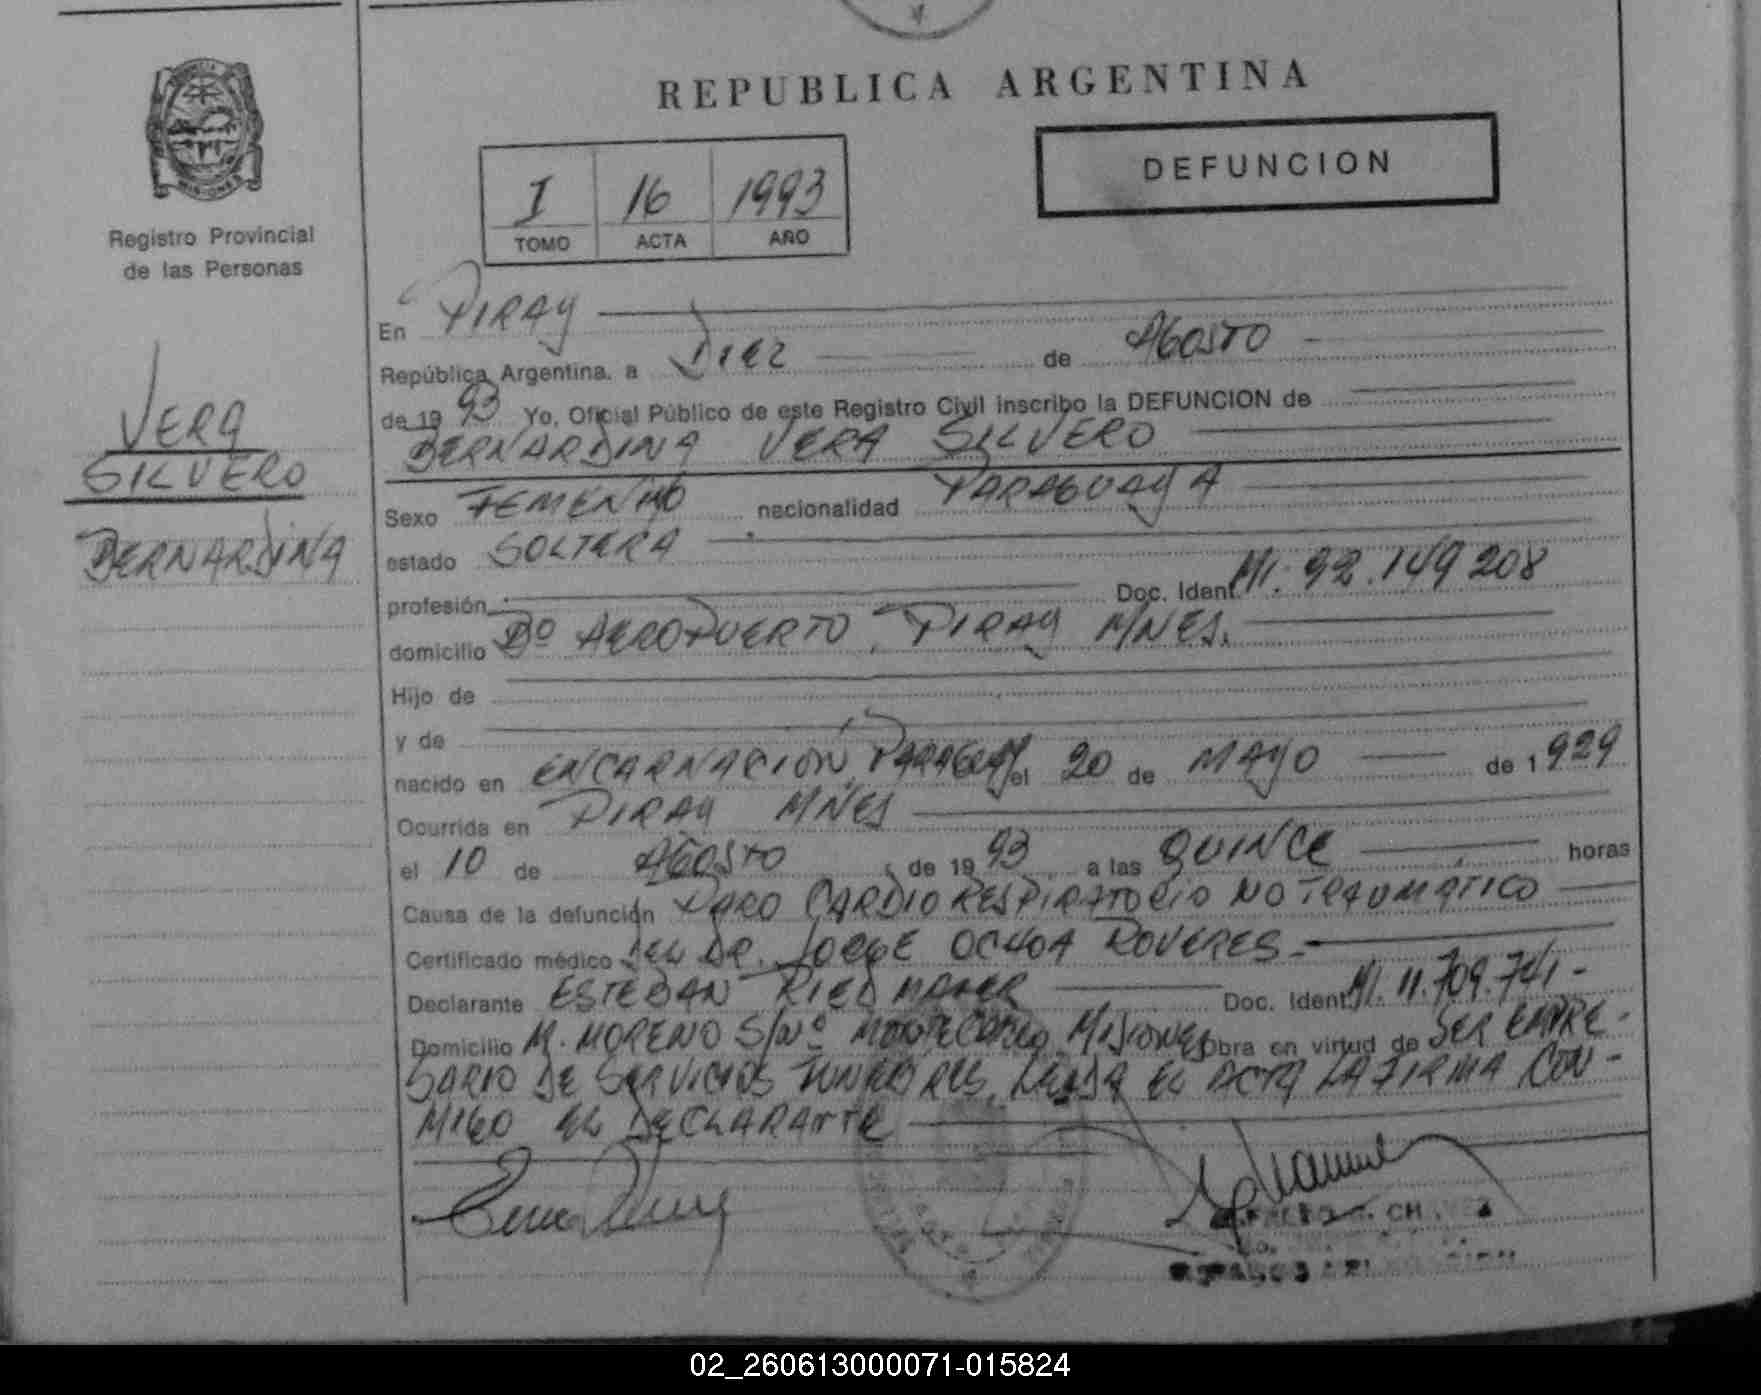 REPUBLICA ARGENTINA
DEFUNCION
I 16 1993
TOMO ACTA AÑO
MISIONES
Registro Provincial
de las Personas
VERA
SILVERO
BERNARDINA
En PIRAY
República Argentina, a DIEZ de AGOSTO
de 19 93 Yo, Oficial Público de este Registro Civil inscribo la DEFUNCION de
BERNARDINA VERA SILVERO
Sexo FEMENINO nacionalidad PARAGUAYA
estado SOLTERA
profesión Doc. Ident. MI. 92.149 208
domicilio Bº AEROPUERTO, PIRAY MNES.
Hijo de
y de
nacido en ENCARNACION, PARAGUAY el 20 de MAYO de 1 929
Ocurrida en PIRAY MNES
el 10 de AGOSTO de 19 93 a las QUINCE horas
Causa de la defunción PARO CARDIO RESPIRATORIO NO TRAUMATICO
Certificado médico DEL DR. JORGE OCHOA ROVERES -
Declarante ESTEBAN Doc. Ident. MI. 11.709.741-
Domicilio M. MORENO S/Nº MONTECARLO, MISIONES Obra en virtud de SER EMPRE-
SARIO DE SERVICIOS FUNEBRES, LEIDA EL ACTA LA FIRMA CON-
MIGO EL DECLARANTE
02_260613000071-015824